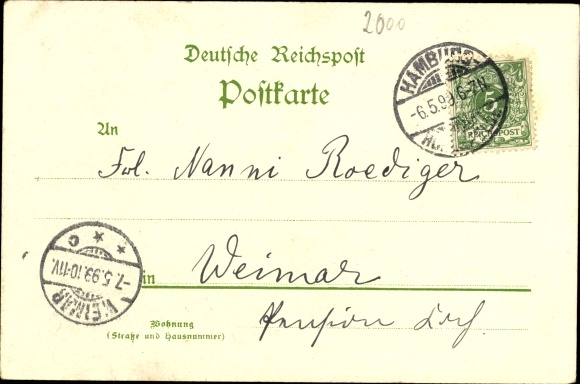 2000
Deutsche Reichspost
Postkarte
HAMBURG
-6.5.99.6-7N.
5
REICHSPOST
An
Frl. Nanni Roediger
in Weimar
WEIMAR
-7.5.99.10-11V.
C
Wohnung
(Straße und Hausnummer)
Pension